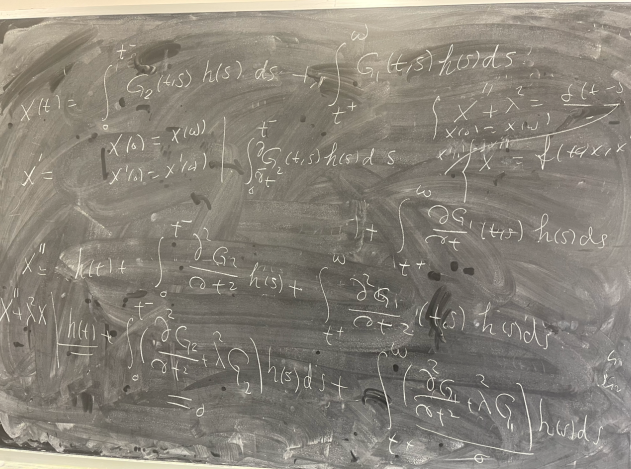 x(t) = ∫₀^{t⁻} G₂(t,s) h(s) ds + ∫_{t⁺}^{ω} G₁(t,s) h(s) ds
x(0) = x(ω)
x'(0) = x'(ω)
x' = ∫₀^{t⁻} ∂G₂/∂t (t,s) h(s) ds
+ ∫_{t⁺}^{ω} ∂G₁/∂t (t,s) h(s) ds
x'' + λ² =
x(0) = x(ω)
x'' = h(t) + ∫₀^{t⁻} ∂²G₂/∂t² h(s) + ∫_{t⁺}^{ω} ∂²G₁/∂t² (t,s) h(s) ds
x'' + λ²x | h(t) + ∫₀^{t⁻} (∂²G₂/∂t² + λ²G₂) h(s) ds + ∫_{t⁺}^{ω} (∂²G₁/∂t² + λ²G₁) h(s) ds
0 0